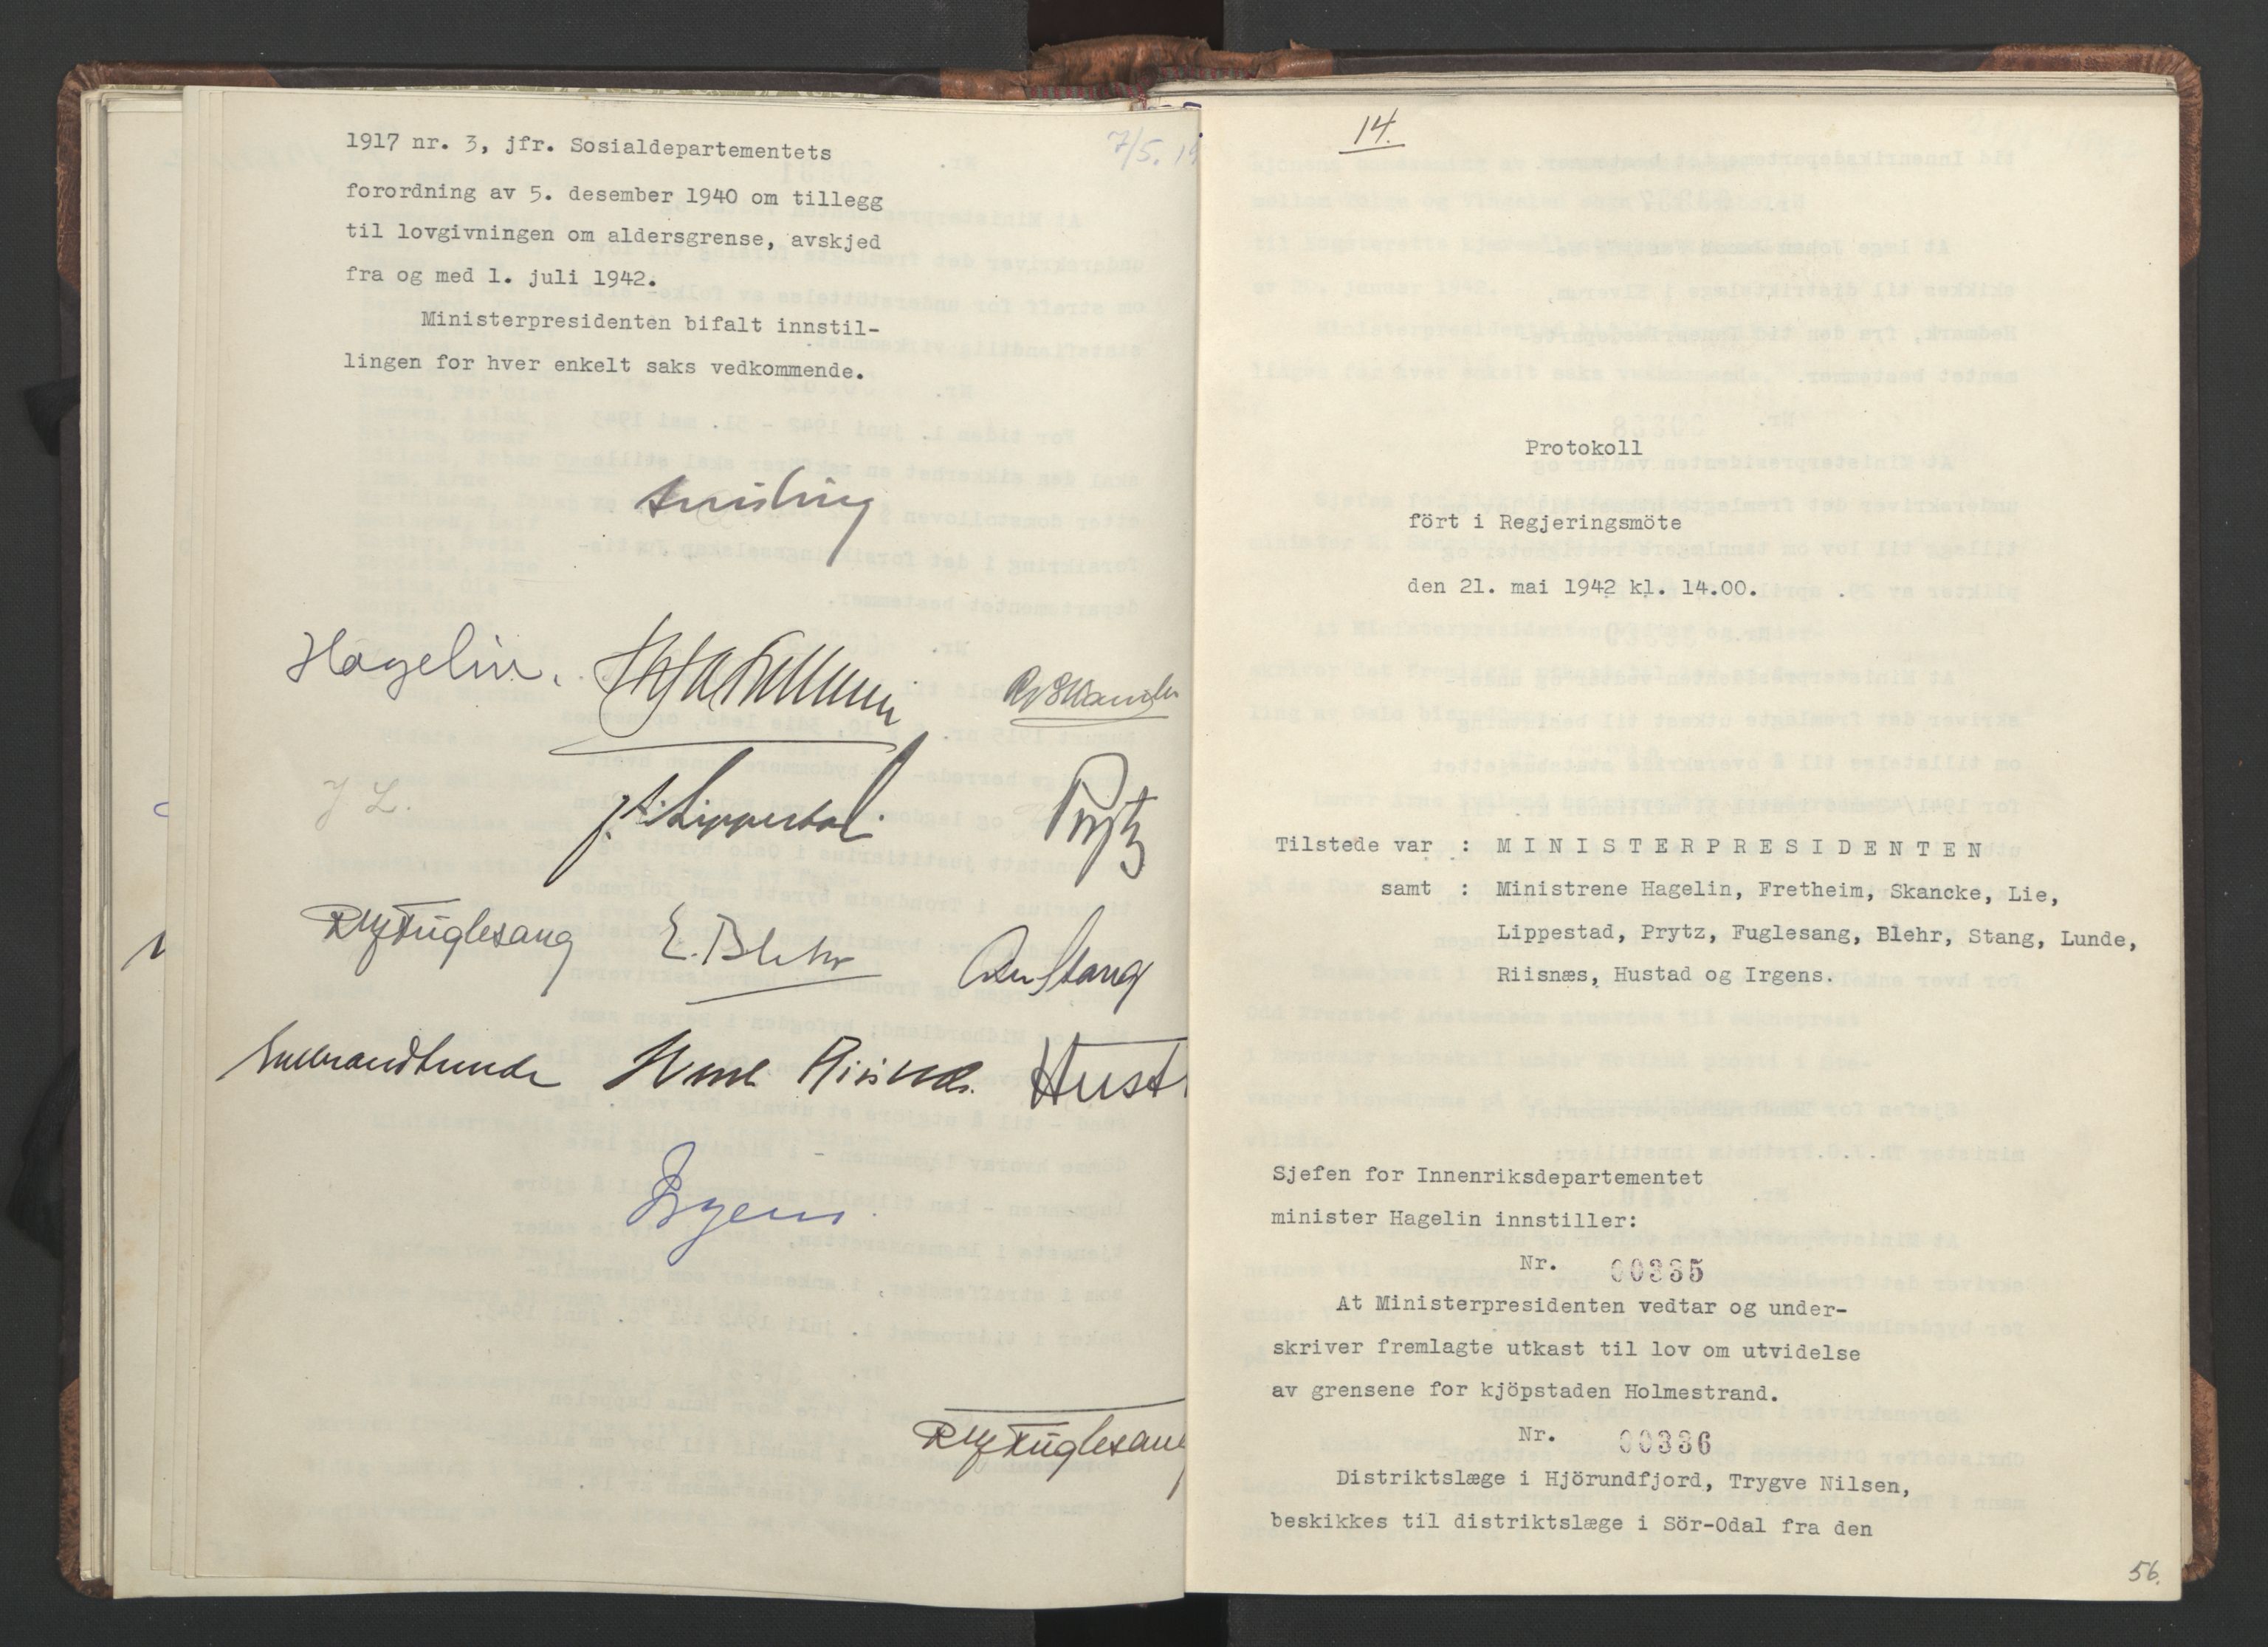 1917 nr. 3, jfr. Sosialdepartementets
7/5. 19
forordning av 5. desember 1940 om tillegg
til lovgivningen om aldersgrense, avskjed
fra og med 1. juli 1942.
Ministerpresidenten bifalt innstil-
lingen for hver enkelt saks vedkommende.
Quisling
Hagelin.
RSkancke
J L.
Lippestad
Prytz
Fuglesang
E. Blehr
Stang
Gulbrand Lunde
Riisnæs.
Hust
Irgens
Fuglesang
14.
Protokoll
fört i Regjeringsmöte
den 21. mai 1942 kl. 14.00.
Tilstede var : MINISTERPRESIDENTEN
samt : Ministrene Hagelin, Fretheim, Skancke, Lie,
Lippestad, Prytz, Fuglesang, Blehr, Stang, Lunde,
Riisnæs, Hustad og Irgens.
Sjefen for Innenriksdepartementet
minister Hagelin innstiller:
Nr. 00335
At Ministerpresidenten vedtar og under-
skriver fremlagte utkast til lov om utvidelse
av grensene for kjöpstaden Holmestrand.
Nr. 00336
Distriktslæge i Hjörundfjord, Trygve Nilsen,
beskikkes til distriktslæge i Sör-Odal fra den
56.